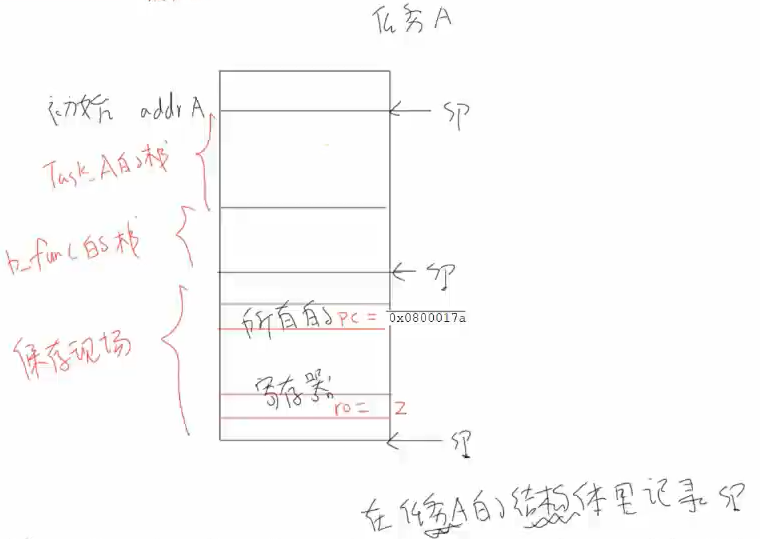 任务A
初始 addr A
SP
Task_A的栈
b_func的栈
SP
所有的 pc = 0x0800017a
保存现场
寄存器
r0 = 2
SP
在任务A的结构体里记录SP